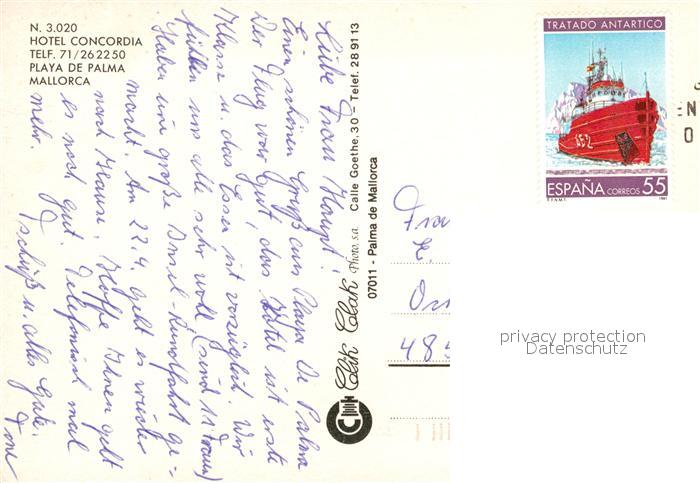 N. 3.020
HOTEL CONCORDIA
TELF. 71/262250
PLAYA DE PALMA
MALLORCA
Liebe Frau Haupt!
Einen schönen Gruß aus Playa De Palma
Der Flug war gut, das Hotel ist erste
Klasse u. das Essen ist vorzüglich. Wir
fühlen uns alle sehr wohl (sind 11 Frauen)
Haben eine große Insel-Rundfahrt ge-
macht. Am 22.4. geht es wieder
nach Hause. Hoffe Ihnen geht
es noch gut. Telefonisch mal
mehr. Tschüß u. alles Gute.
Clik Clak Photo, s.a. Calle Goethe, 30 - Telef. 28 91 13
07011 - Palma de Mallorca
TRATADO ANTARTICO
ESPAÑA CORREOS 55
F.N.M.T. 1991
privacy protection
Datenschutz